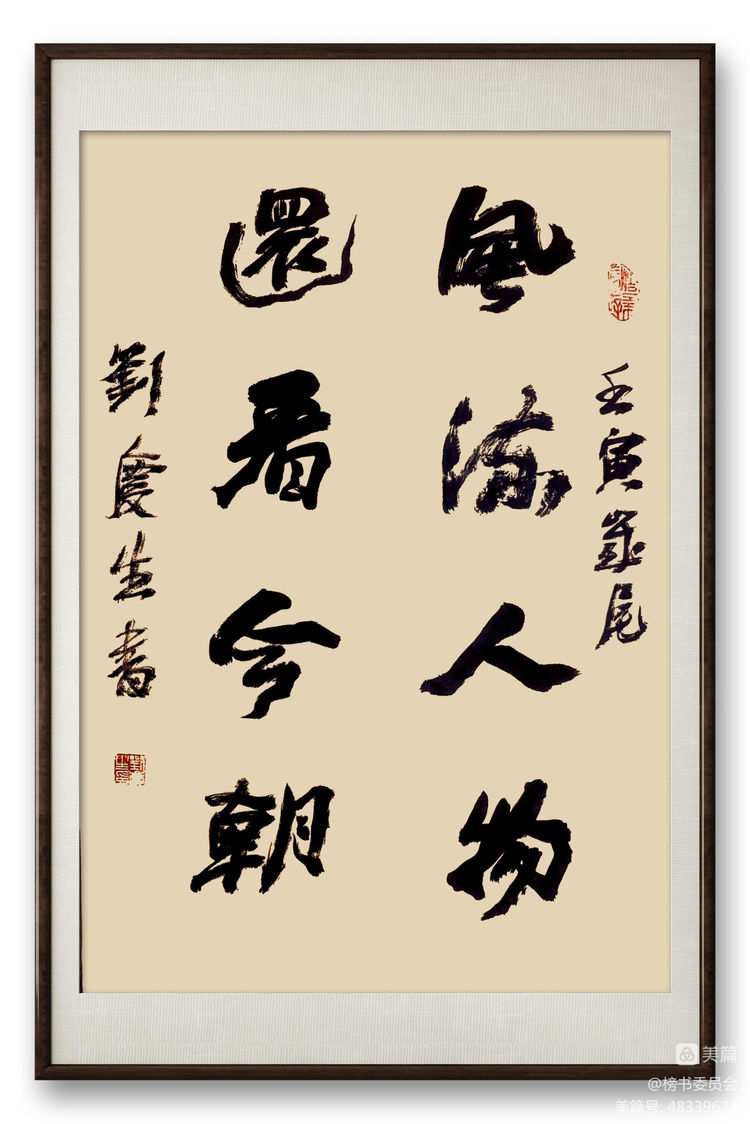 壬寅歲尾
風流人物
還看今朝
劉慶生書
美篇
@榜书委员会
美篇号: 48339623